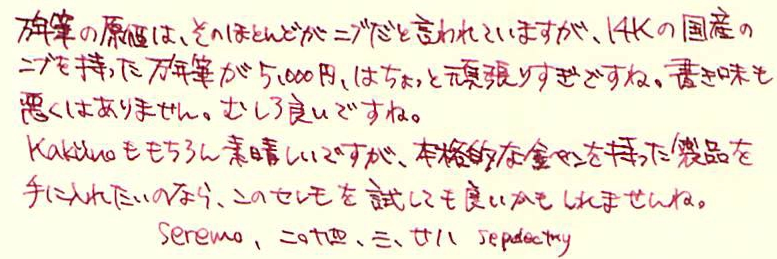 万年筆の原価は、そのほとんどがニブだと言われていますが、14Kの国産の
ニブを持った万年筆が5,000円、はちょっと頑張りすぎですね。書き味も
悪くはありません。むしろ良いですね。
Kakünoももちろん素晴しいですが、本格的な金ペンを持った製品を
手に入れたいのなら、このセレモを試しても良いかもしれませんね。
seremo、